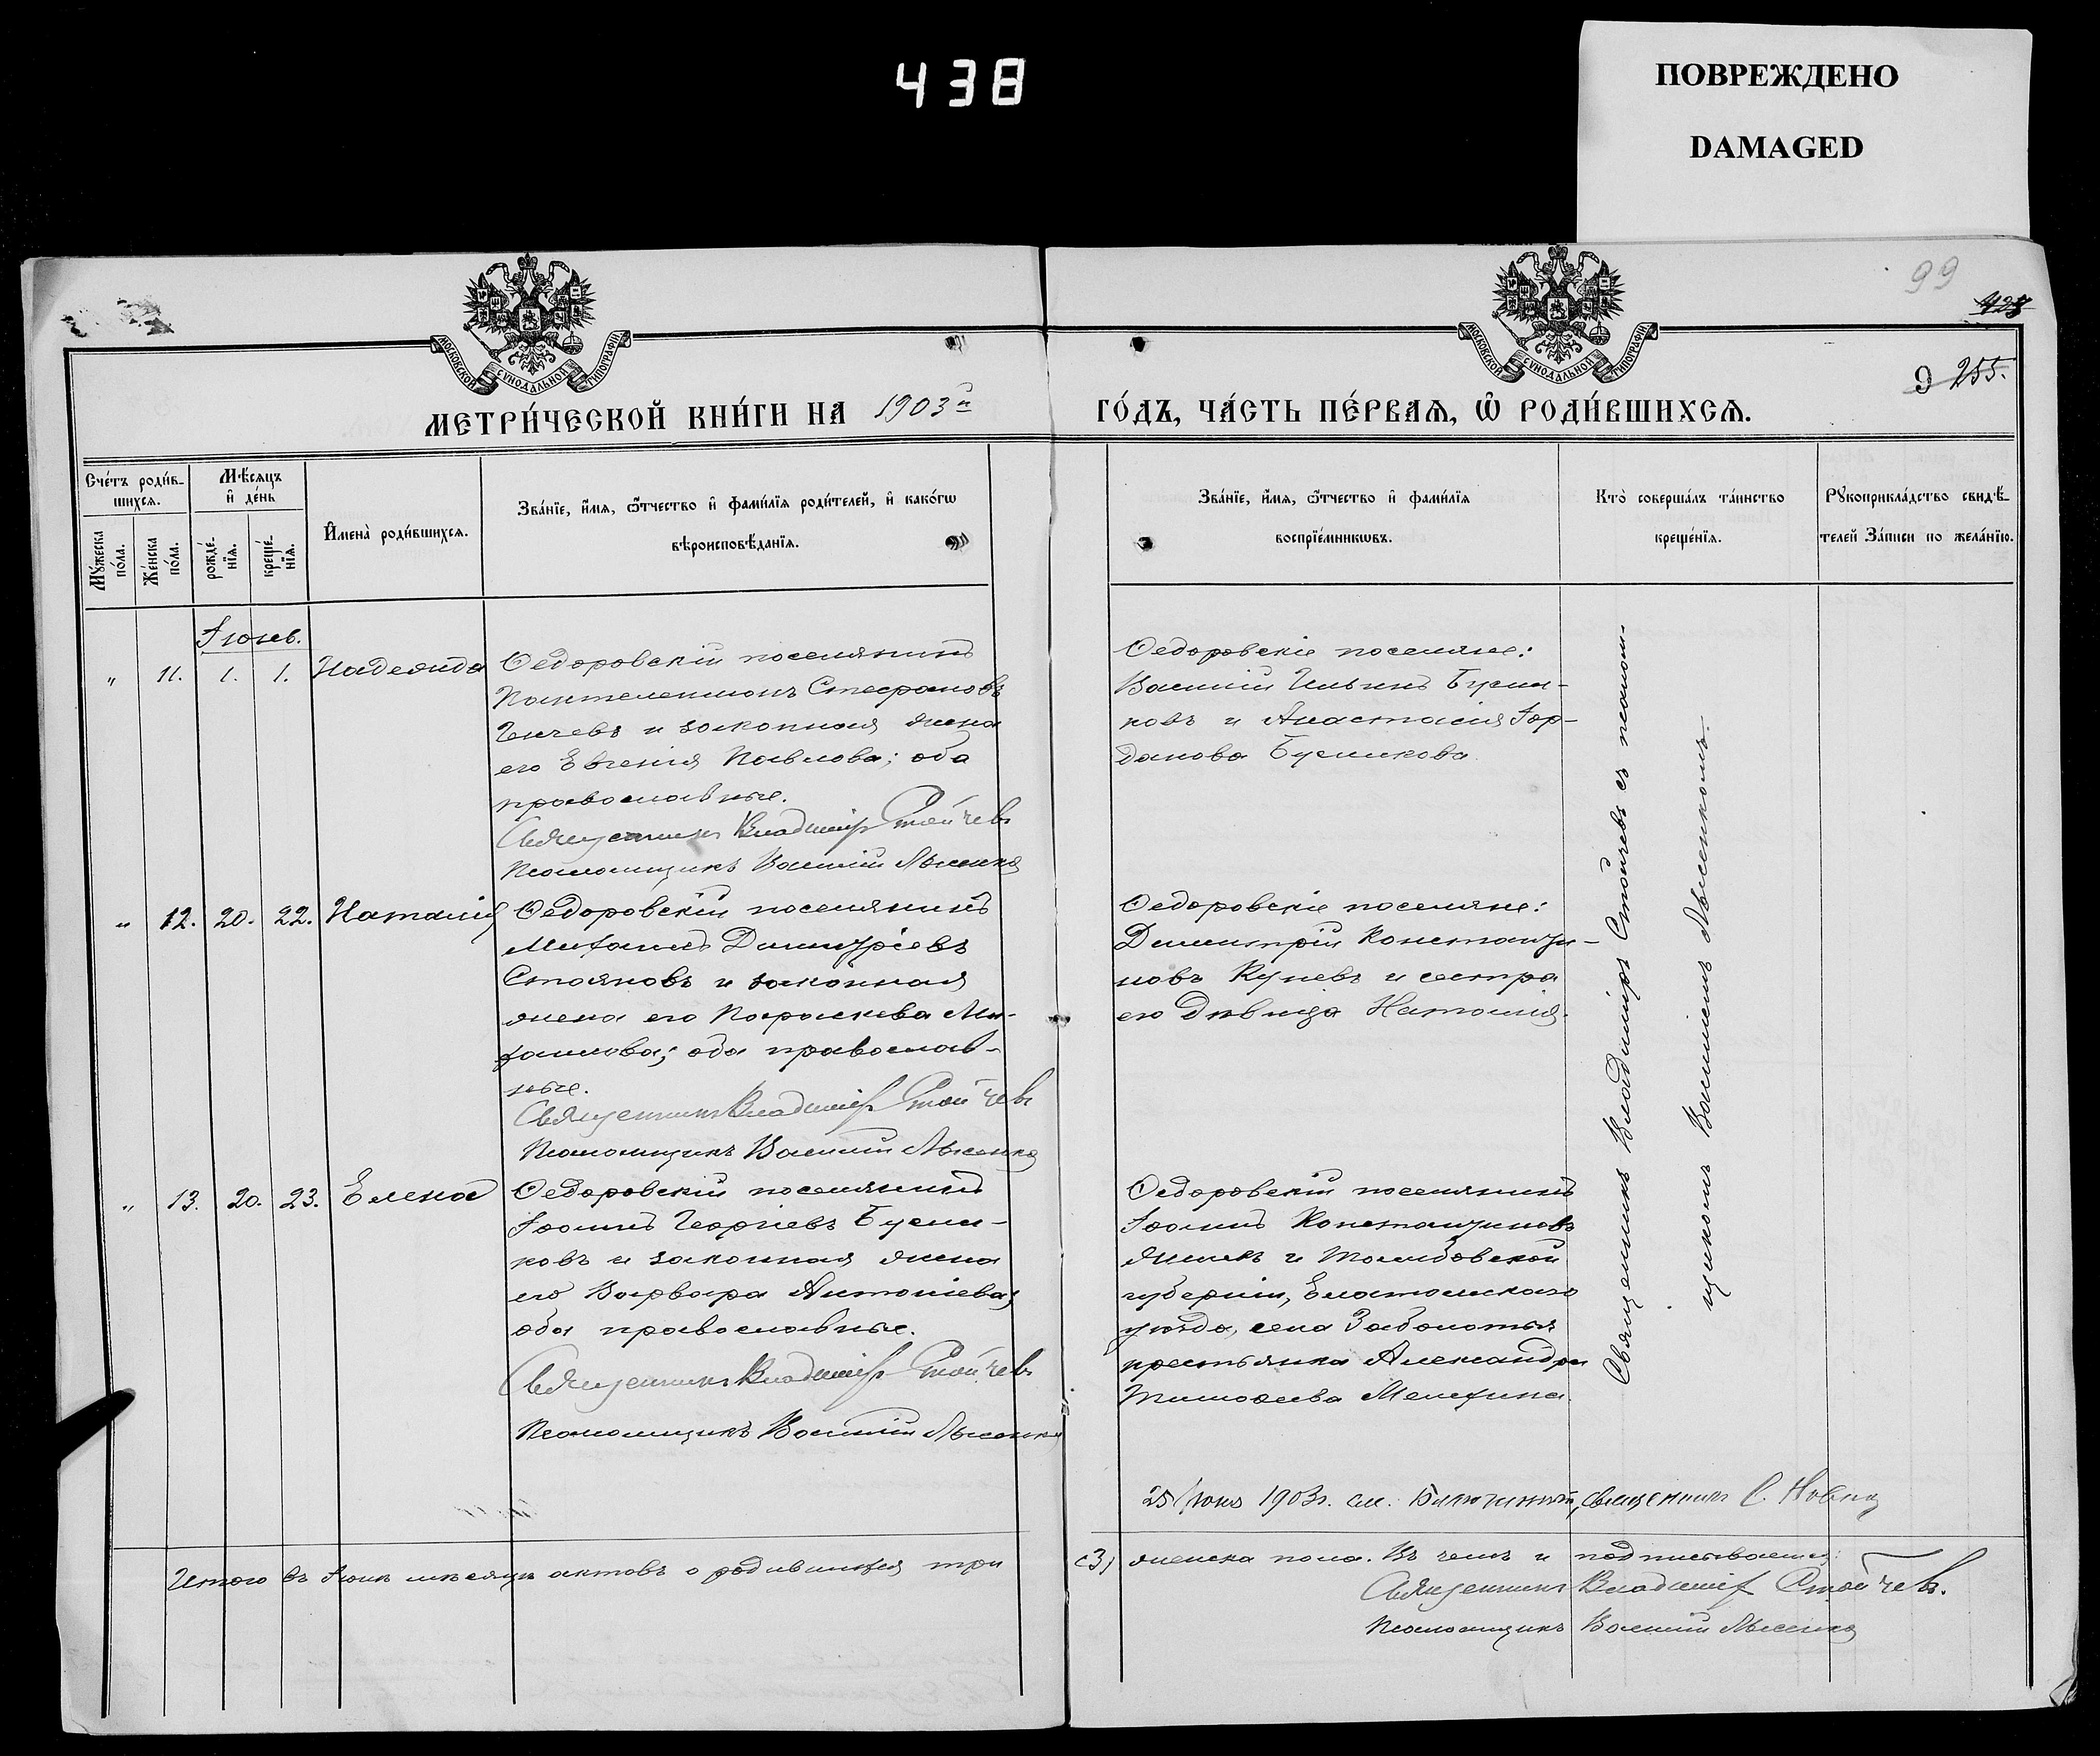 438
ПОВРЕЖДЕНО
DAMAGED
99
428
9 255.
МОСКОВСКОЙ СУНОДАЛЬНОЙ ТИПОГРАФІИ
МОСКОВСКОЙ СУНОДАЛЬНОЙ ТИПОГРАФІИ
МЕТРИ́ЧЕСКОЙ КНИ́ГИ НА 1903й
ГО́ДЪ, ЧА́СТЬ ПЕ́РВАЯ, Ѡ҆ РОДИ́ВШИХСЯ.
Сче́тъ роди́в-
шихся.
Му́жеска по́ла.
Же́нска по́ла.
Мѣ́сяцъ
и҆ де́нь
рожде́-
нїя.
креще́-
нїя.
И҆мена̀ роди́вшихся.
Зва́нїе, и҆́мя, ѻ҆́тчество и҆ фами́лїя роди́телей, и҆ како́гѡ
вѣроисповѣ́данїя.
Зва́нїе, и҆́мя, ѻ҆́тчество и҆ фами́лїя
воспрїе́мникѡвъ.
Кто̀ соверша́лъ та́инство
креще́нїя.
Рꙋкоприкла́дство свидѣ́-
телей За́писи по жела́нїю.
Іюнь.
„ 11. 1. 1. Надежда
Ѳедоровскій поселянинъ
Пантелеимонъ Стефановъ
Генчевъ и законная жена
его Евгенія Павлова; оба
православные.
Священникъ Владиміръ Стойчевъ
Псаломщикъ Василій Лысенко
Ѳедоровскіе поселяне:
Василій Ильинъ Бусли-
ковъ и Анастасія Іор-
данова Бусликова.
„ 12. 20. 22. Наталія
Ѳедоровскій поселянинъ
Михаилъ Димитріевъ
Стояновъ и законная
жена его Параскева Ми-
хаилова; оба православ-
ные.
Священникъ Владиміръ Стойчевъ
Псаломщикъ Василій Лысенко
Ѳедоровскіе поселяне:
Димитрій Константи-
новъ Куневъ и сестра
его дѣвица Наталія.
„ 13. 20. 23. Елена
Ѳедоровскій поселянинъ
Іоаннъ Георгіевъ Бусли-
ковъ и законная жена
его Варвара Антоніева;
оба православные.
Священникъ Владиміръ Стойчевъ
Псаломщикъ Василій Лысенко
Ѳедоровскій поселянинъ
Іоаннъ Константиновъ
и Тамбовской
губерніи, Елатомскаго
уѣзда, села Заболотья
крестьянка Александра
Тимоѳеева Мелехина.
Священникъ Владиміръ Стойчевъ съ псалом-
щикомъ Василіемъ Лысенкомъ.
25 Іюня 1903г. см. Благочинный, священникъ С.
Итого въ Іюнѣ мѣсяцѣ актовъ о родившихся три
(3) женска пола. Въ чемъ и подписываемся:
Священникъ Владиміръ Стойчевъ.
Псаломщикъ Василій Лысенко